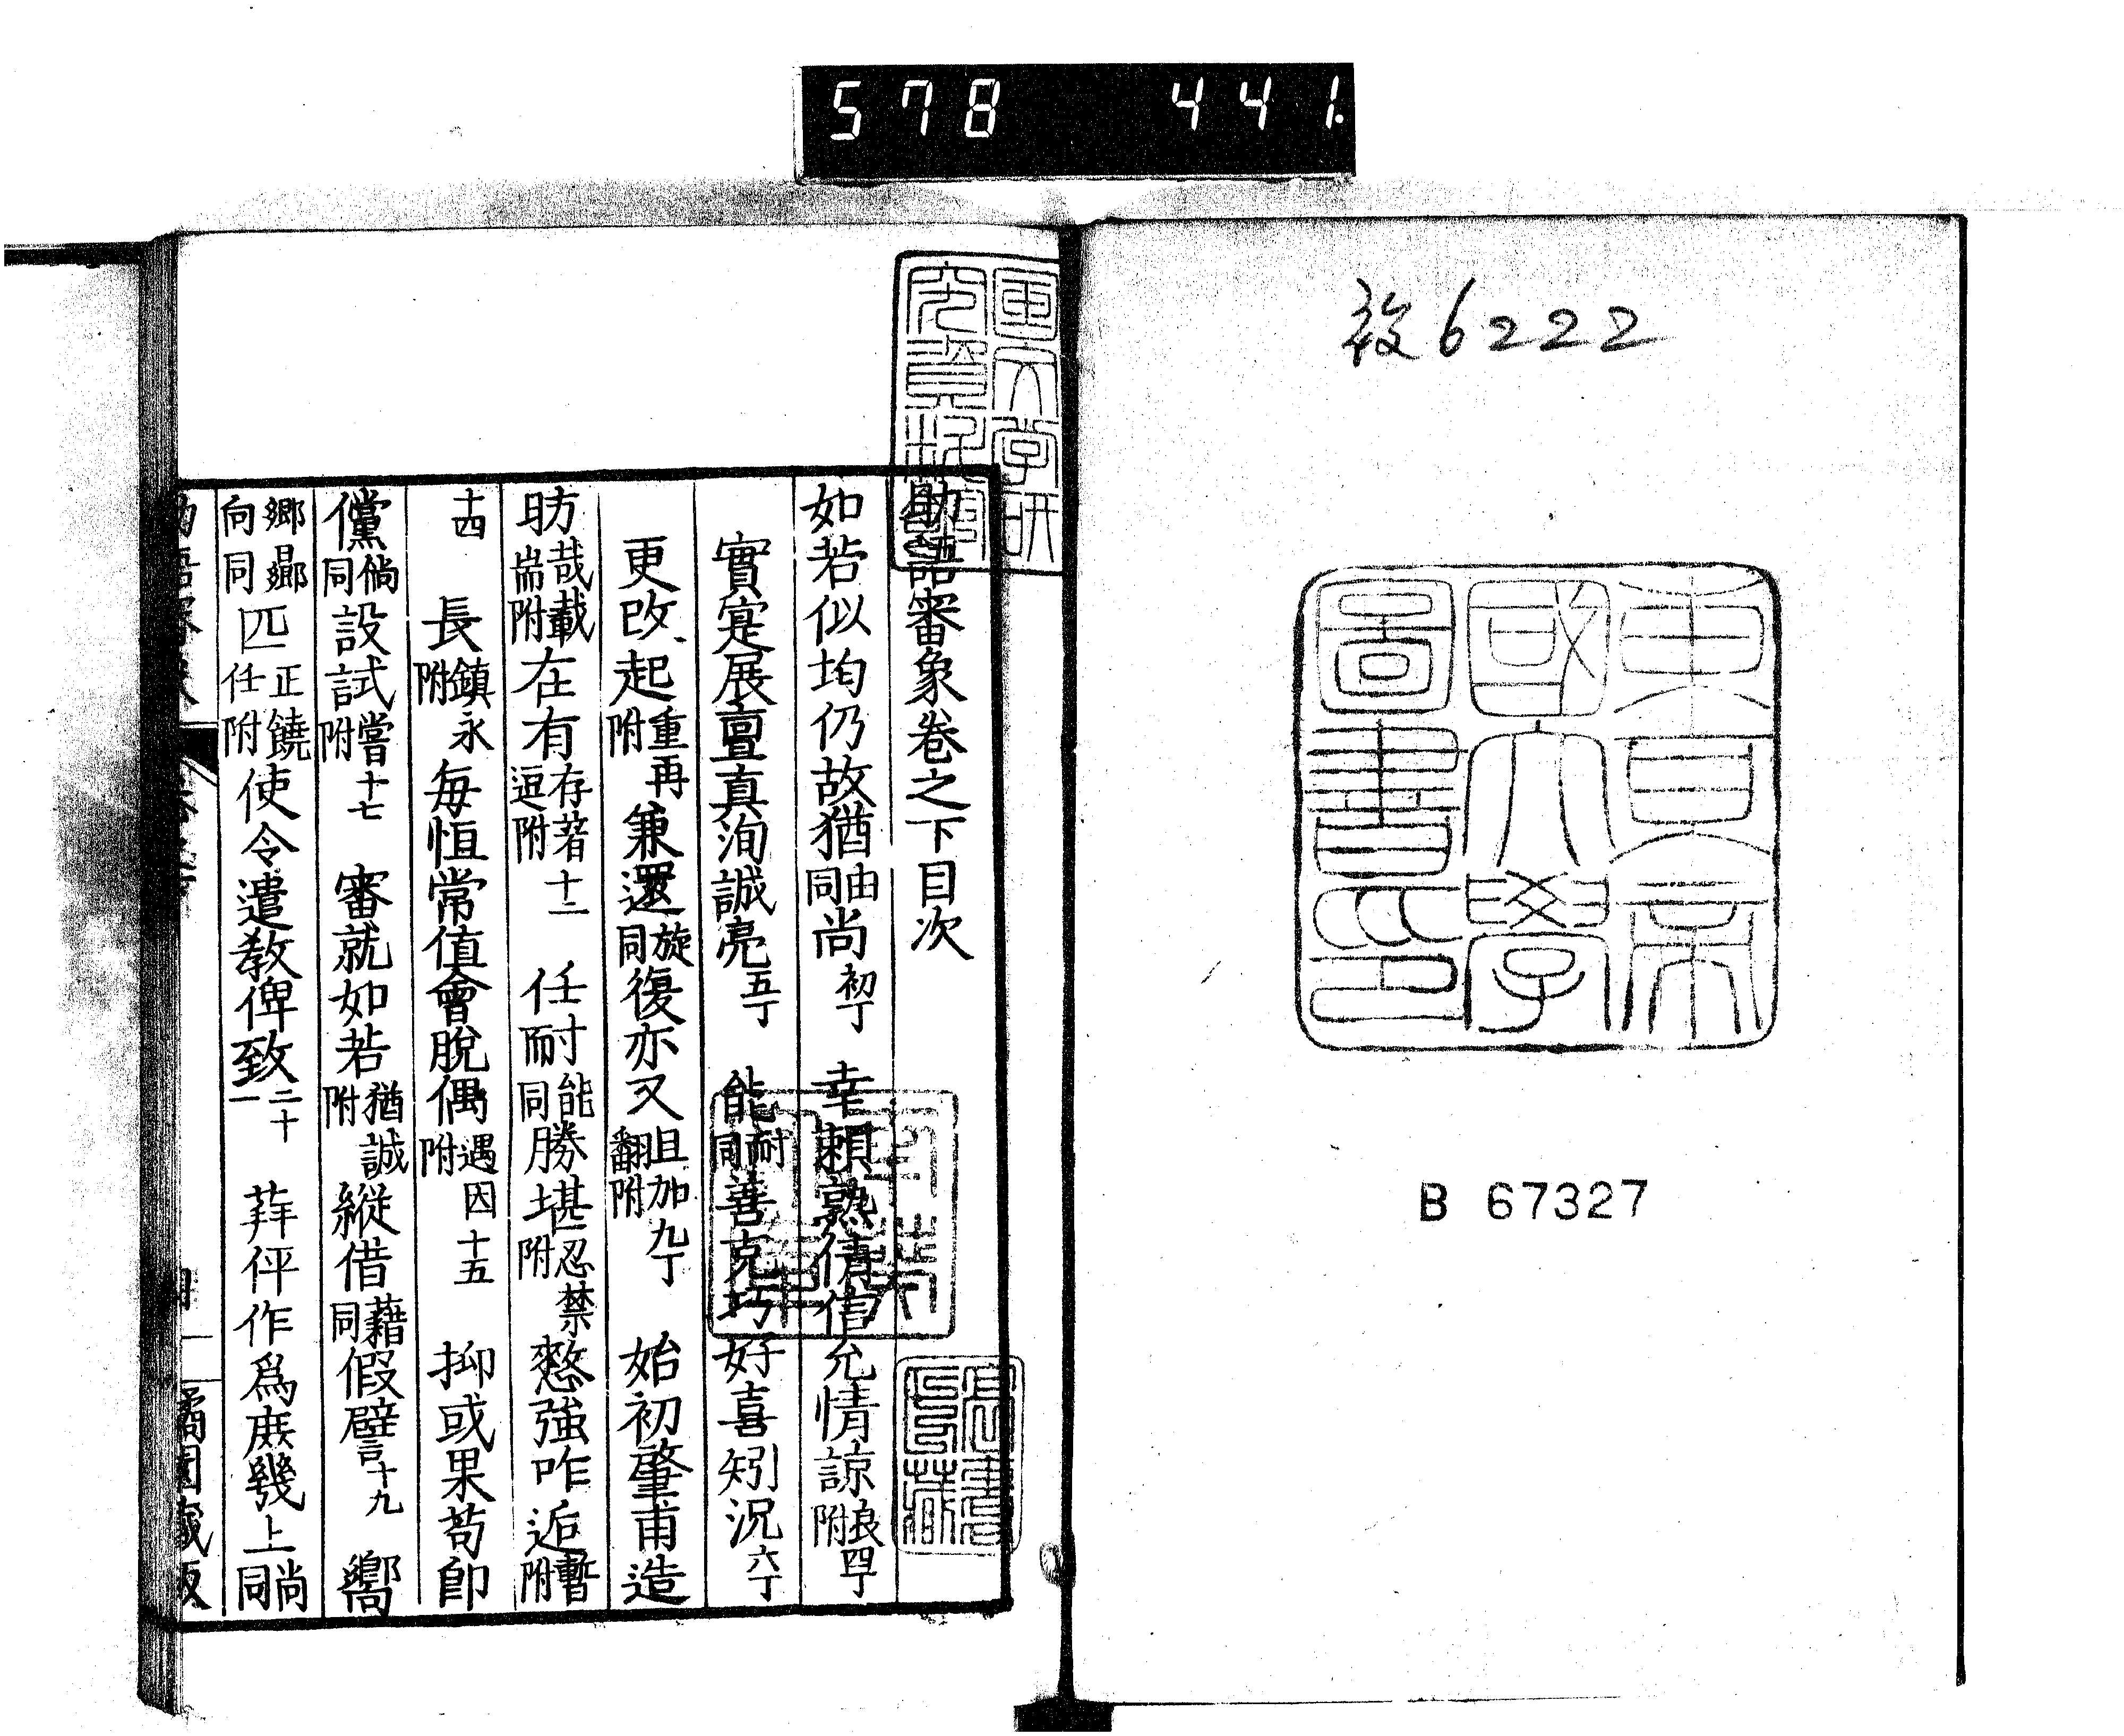 578 441.
教6222
東京帝
國大學
圖書印
B 67327
助語審象卷之下目次
如若似均仍故猶由同尚初丁 幸賴熟倩値允情諒良附四丁
實寔展亶真洵誠亮五丁 能耐同善克巧好喜矧況六丁
更改起重再附兼還旋同復亦又且加翻附九丁 始初肇甫造
昉哉載耑附在有存著逗附十二 任耐寸能同勝堪忍禁附憗強咋近暫附
十四 長鎮永附每恒常値會脫偶遇因附十五 抑或果苟卽
儻倘同設試嘗附十七 審就如若猶誠附縱借藉同假譬十九 嚮
鄉曏向同匹正饒任附使令遣敎俾致二十一 荓伻作爲庶幾上尚同